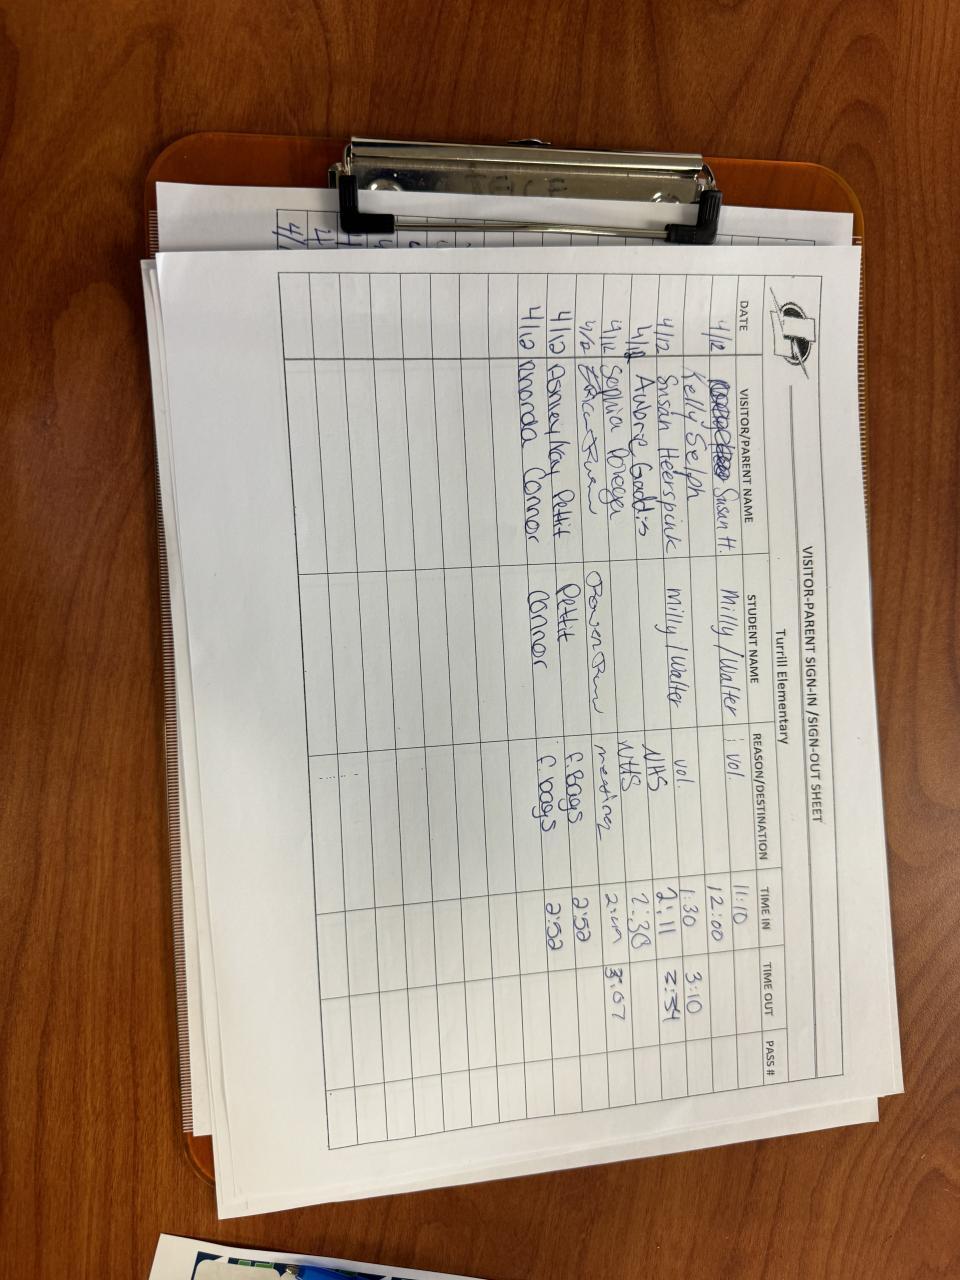 VISITOR-PARENT SIGN-IN /SIGN-OUT SHEET
Turrill Elementary
DATE VISITOR/PARENT NAME STUDENT NAME REASON/DESTINATION TIME IN TIME OUT PASS #
4/12 Susan H. Milly/Walter vol. 11:10
Kelly Selph 12:00
4/12 Susan Heerspink Milly/Walter vol. 1:30 3:10
4/12 Aubrie Gaddis NHS 2:11 2:34
4/12 Sophia NHS 2:38
4/12 meeting 3:07
4/12 Ashley Kay Pettit Pettit f. Bags 2:52
4/12 Rhonda Connor Connor f. bags 2:52